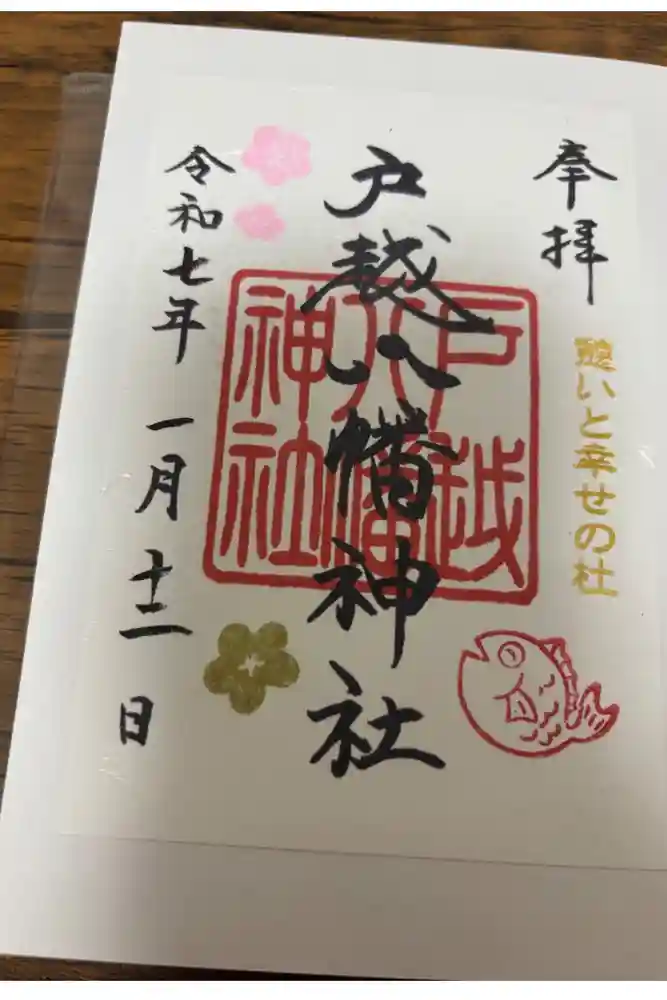 奉拝
憩いと幸せの社
戸越八幡神社
戸越
八幡
神社
令和七年 一月 十二 日